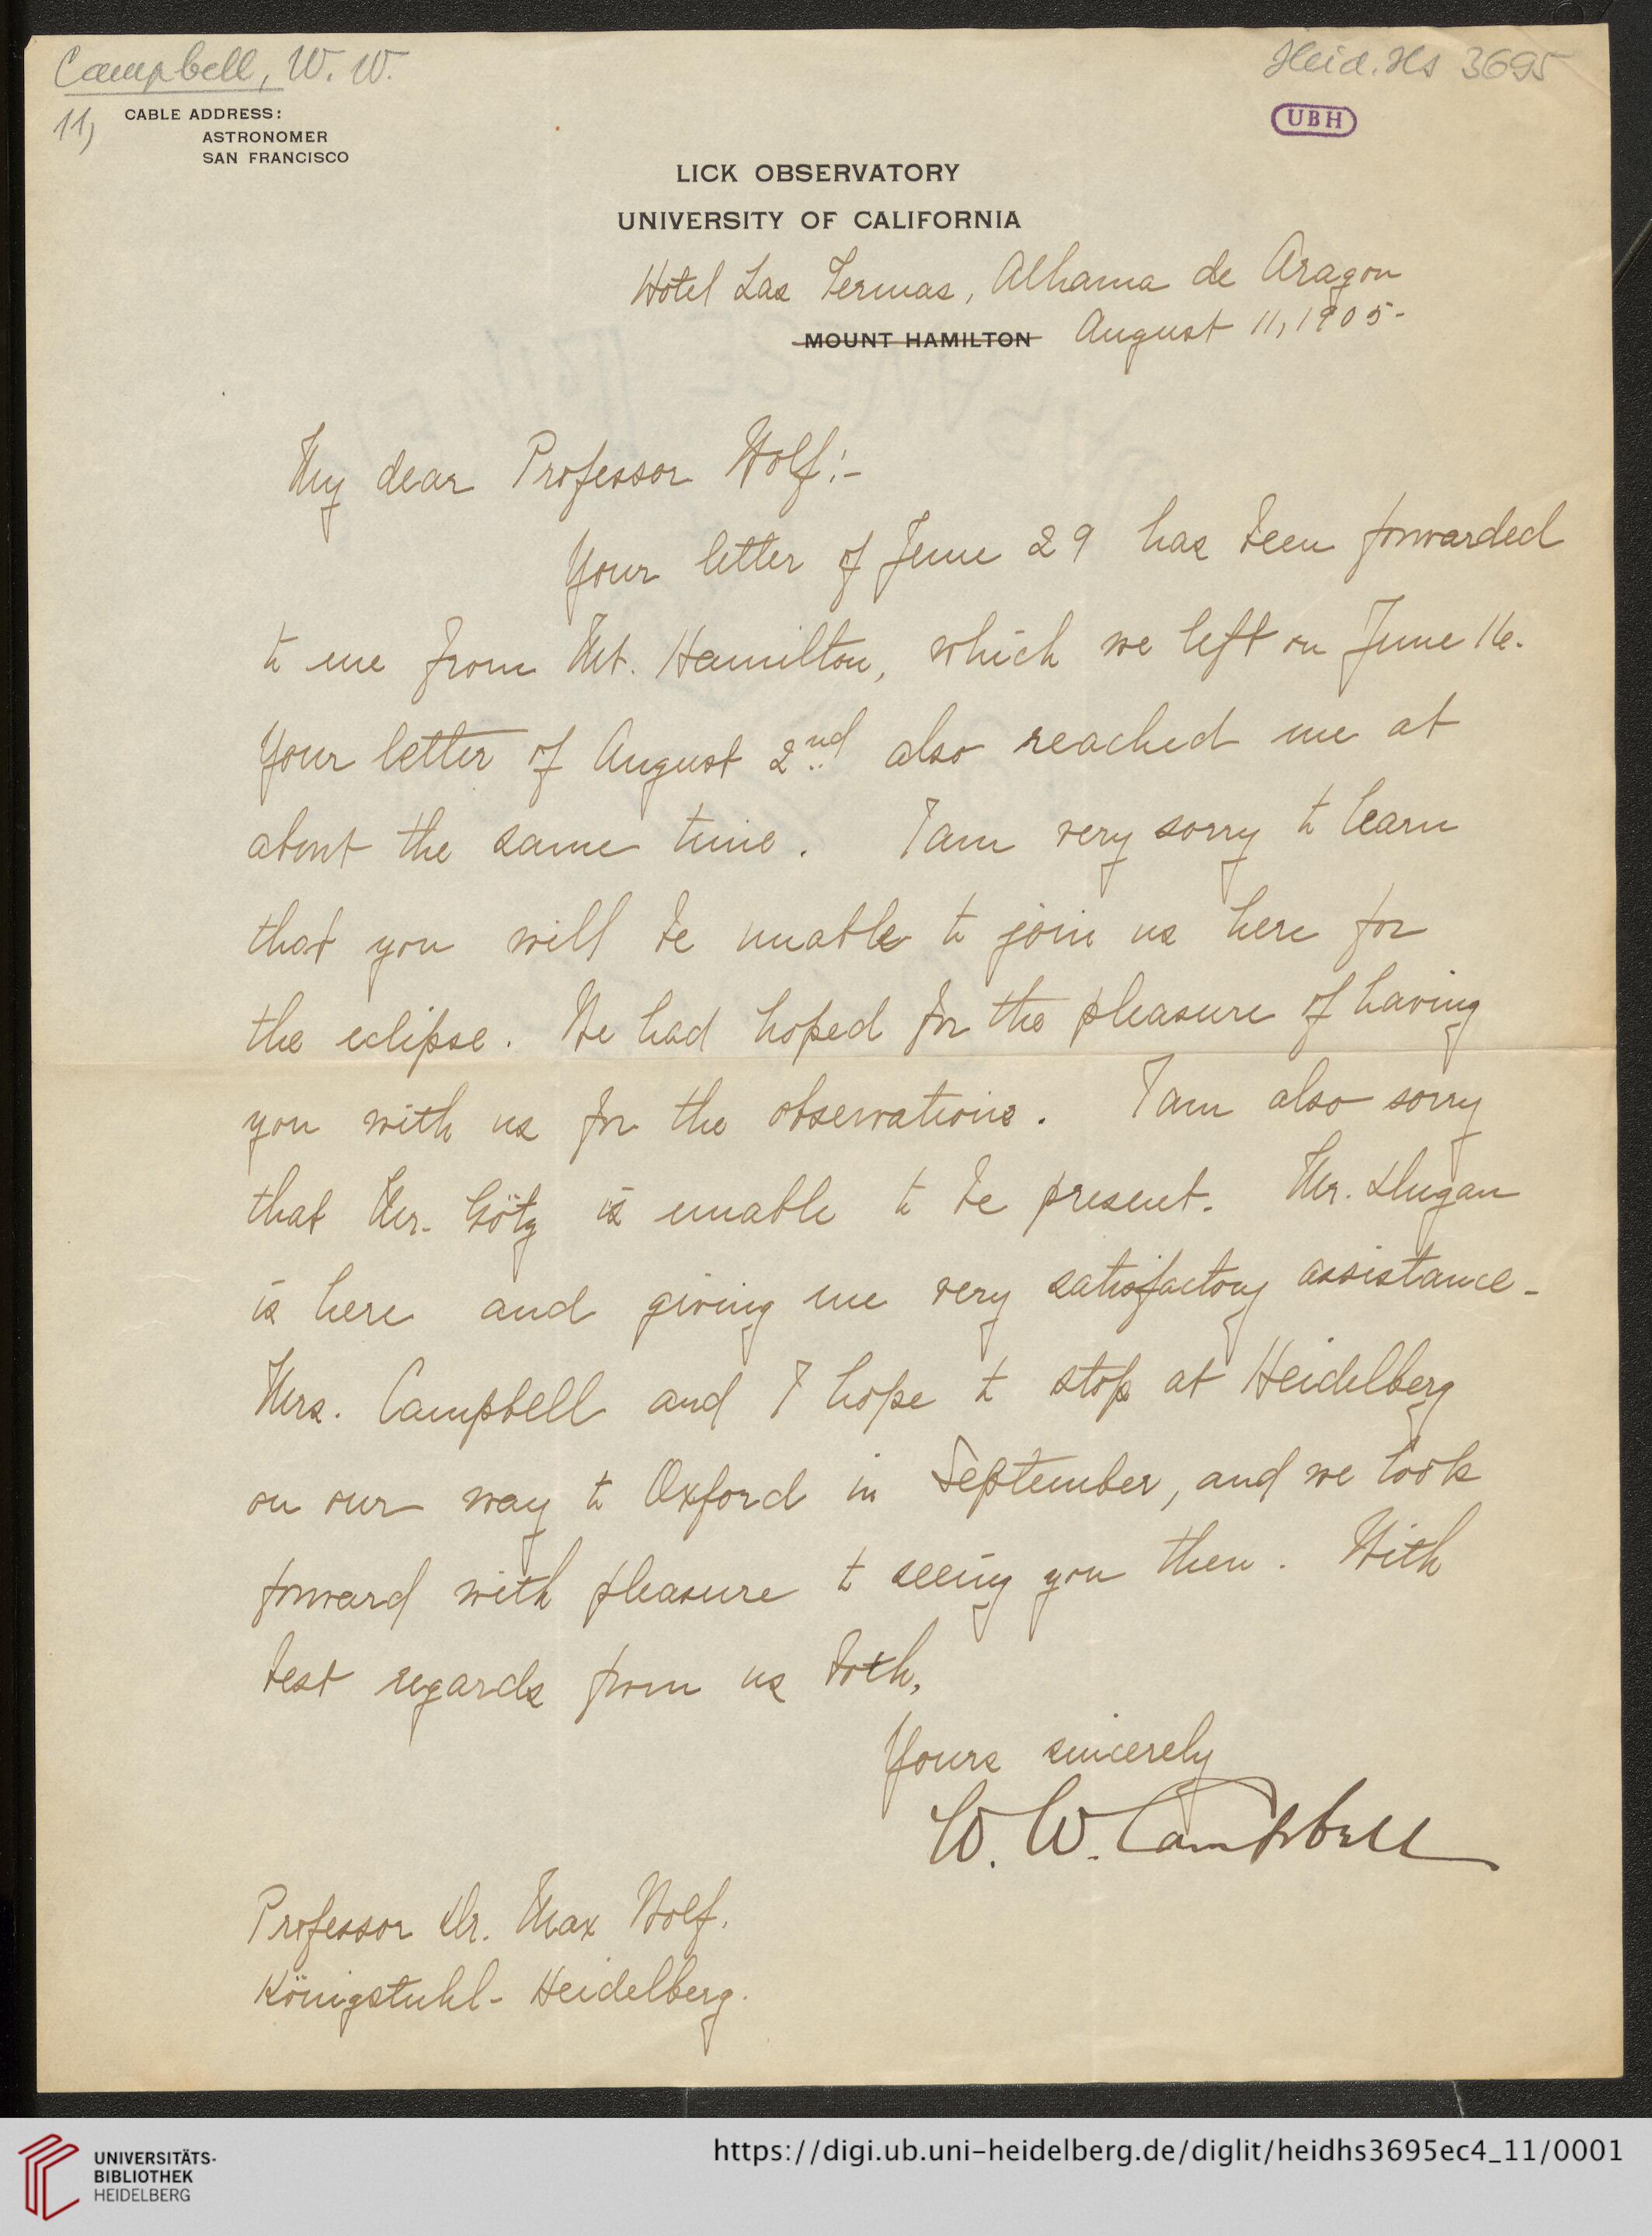 Campbell, W. W.
Heid. Hs 3695
11)
CABLE ADDRESS:
ASTRONOMER
SAN FRANCISCO
UBH
LICK OBSERVATORY
UNIVERSITY OF CALIFORNIA
Hotel Las Termas, Alhama de Aragon
MOUNT HAMILTON August 11, 1905.
My dear Professor Wolf:-
Your letter of June 29 has been forwarded
to me from Mt. Hamilton, which we left on June 16.
Your letter of August 2nd also reached me at
about the same time. I am very sorry to learn
that you will be unable to join us here for
the eclipse. We had hoped for the pleasure of having
you with us for the observations. I am also sorry
that Mr. Götz is unable to be present. Mr. Dugan
is here and giving me very satisfactory assistance.
Mrs. Campbell and I hope to stop at Heidelberg
on our way to Oxford in September, and we look
forward with pleasure to seeing you then. With
best regards from us both,
Yours sincerely
W. W. Campbell
Professor Dr. Max Wolf.
Königstuhl - Heidelberg.
UNIVERSITÄTS-
BIBLIOTHEK
HEIDELBERG
https://digi.ub.uni-heidelberg.de/diglit/heidhs3695ec4_11/0001